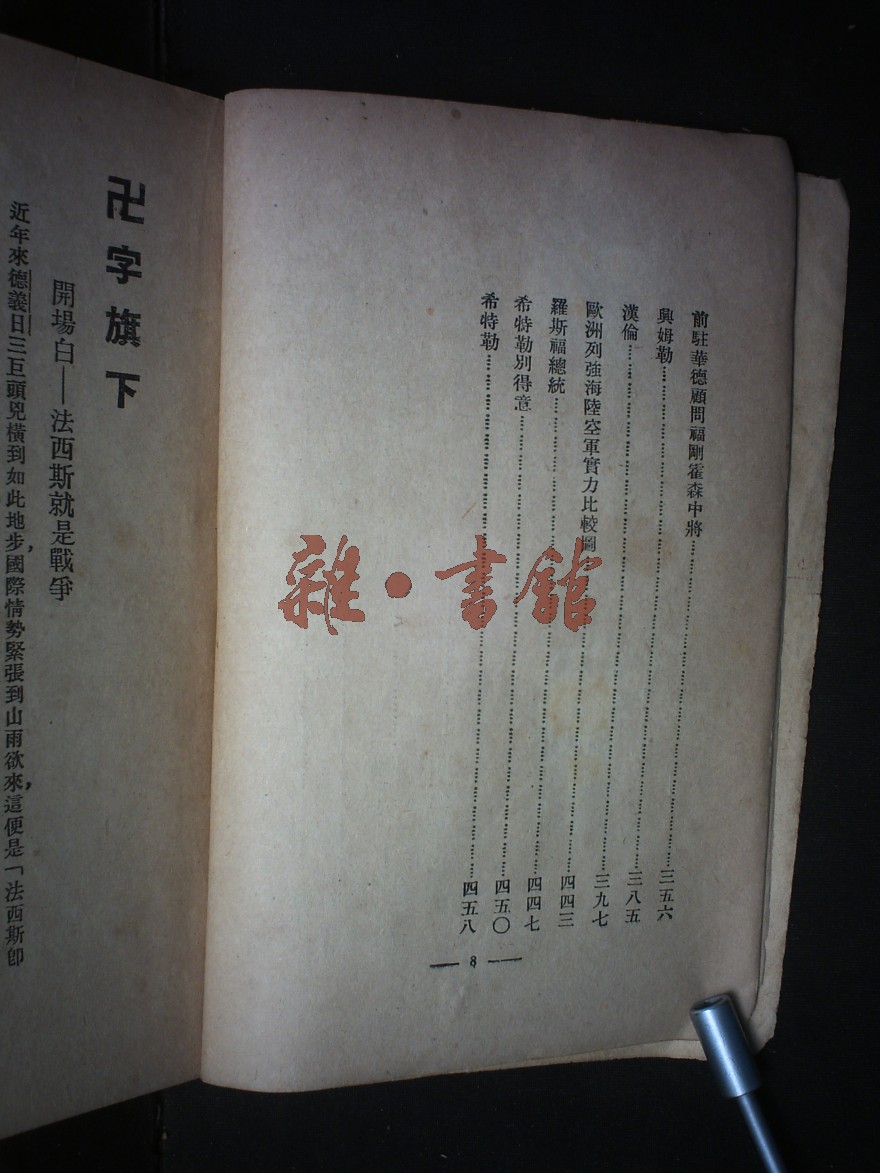 前駐華德顧問福剛霍森中將……三五六
興姆勒……三八五
漢倫……三九七
歐洲列強海陸空軍實力比較圖……四四三
羅斯福總統……四四七
希特勒別得意……四五〇
希特勒……四五八
— 8 —
卍字旗下
開場白—法西斯就是戰爭
近年來德義日三巨頭兇橫到如此地步，國際情勢緊張到山雨欲來，這便是「法西斯卽
雜·書館